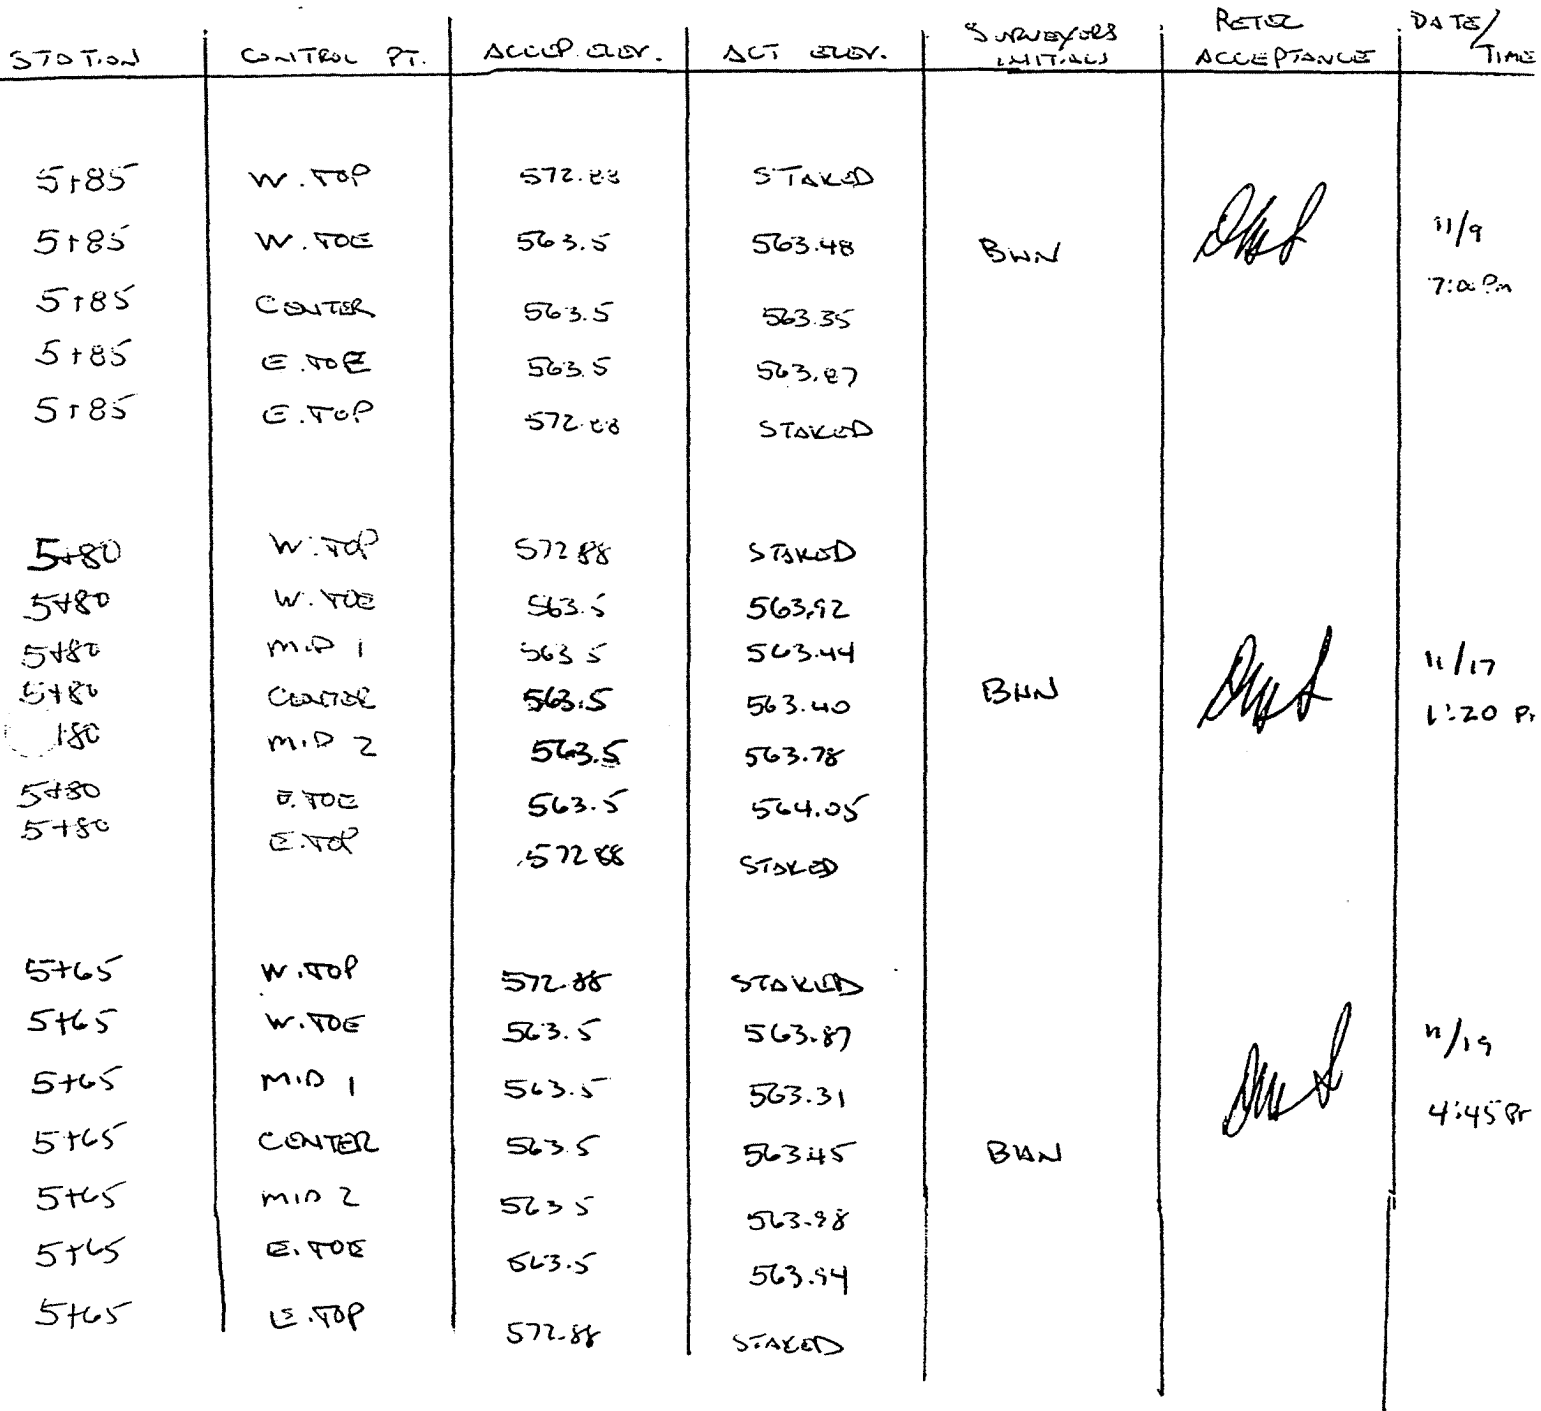 STATION CONTROL PT. ACCEP. ELEV. ACT ELEV. SURVEYORS INITIALS RETEC ACCEPTANCE DATE/TIME
5+85 W. TOP 572.88 STAKED
5+85 W. TOE 563.5 563.48 BWN 11/9
5+85 CENTER 563.5 563.35 7:00 Pm
5+85 E. TOE 563.5 563.87
5+85 E. TOP 572.88 STAKED
5+80 W. TOP 572 88 STAKED
5+80 W. TOE 563.5 563.92
5+80 MID 1 563 5 563.44 11/17
5+80 CENTER 563.5 563.40 BWN 1:20 P
+80 MID 2 563.5 563.78
5+80 E. TOE 563.5 564.05
5+80 E. TOP 572 88 STAKED
5+65 W. TOP 572.88 STAKED
5+65 W. TOE 563.5 563.87 11/19
5+65 MID 1 563.5 563.31 4:45 P
5+65 CENTER 563.5 563.45 BWN
5+65 MID 2 563 5 563.98
5+65 E. TOE 563.5 563.94
5+65 E. TOP 572.88 STAKED